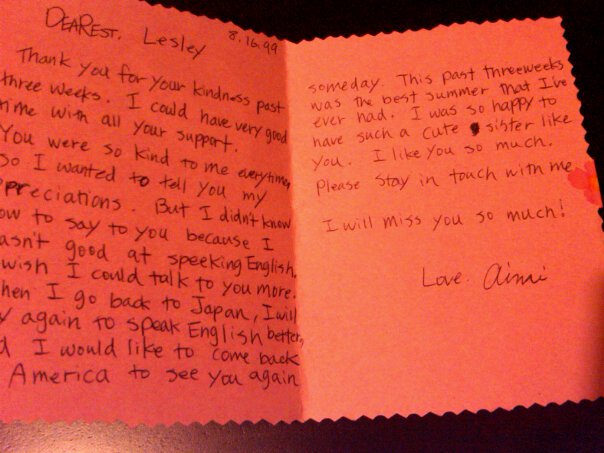 DEAREST, Lesley
8.16.99
Thank you for your kindness past
three weeks. I could have very good
time with all your support.
You were so kind to me everytime,
so I wanted to tell you my
ppreciations. But I didn't know
ow to say to you because I
asn't good at speeking English.
wish I could talk to you more.
hen I go back to Japan, I will
y again to speak English better,
d I would like to come back
America to see you again
someday. This past threeweeks
was the best summer that I've
ever had. I was so happy to
have such a cute sister like
you. I like you so much.
Please stay in touch with me.
I will miss you so much!
Love. Aimi